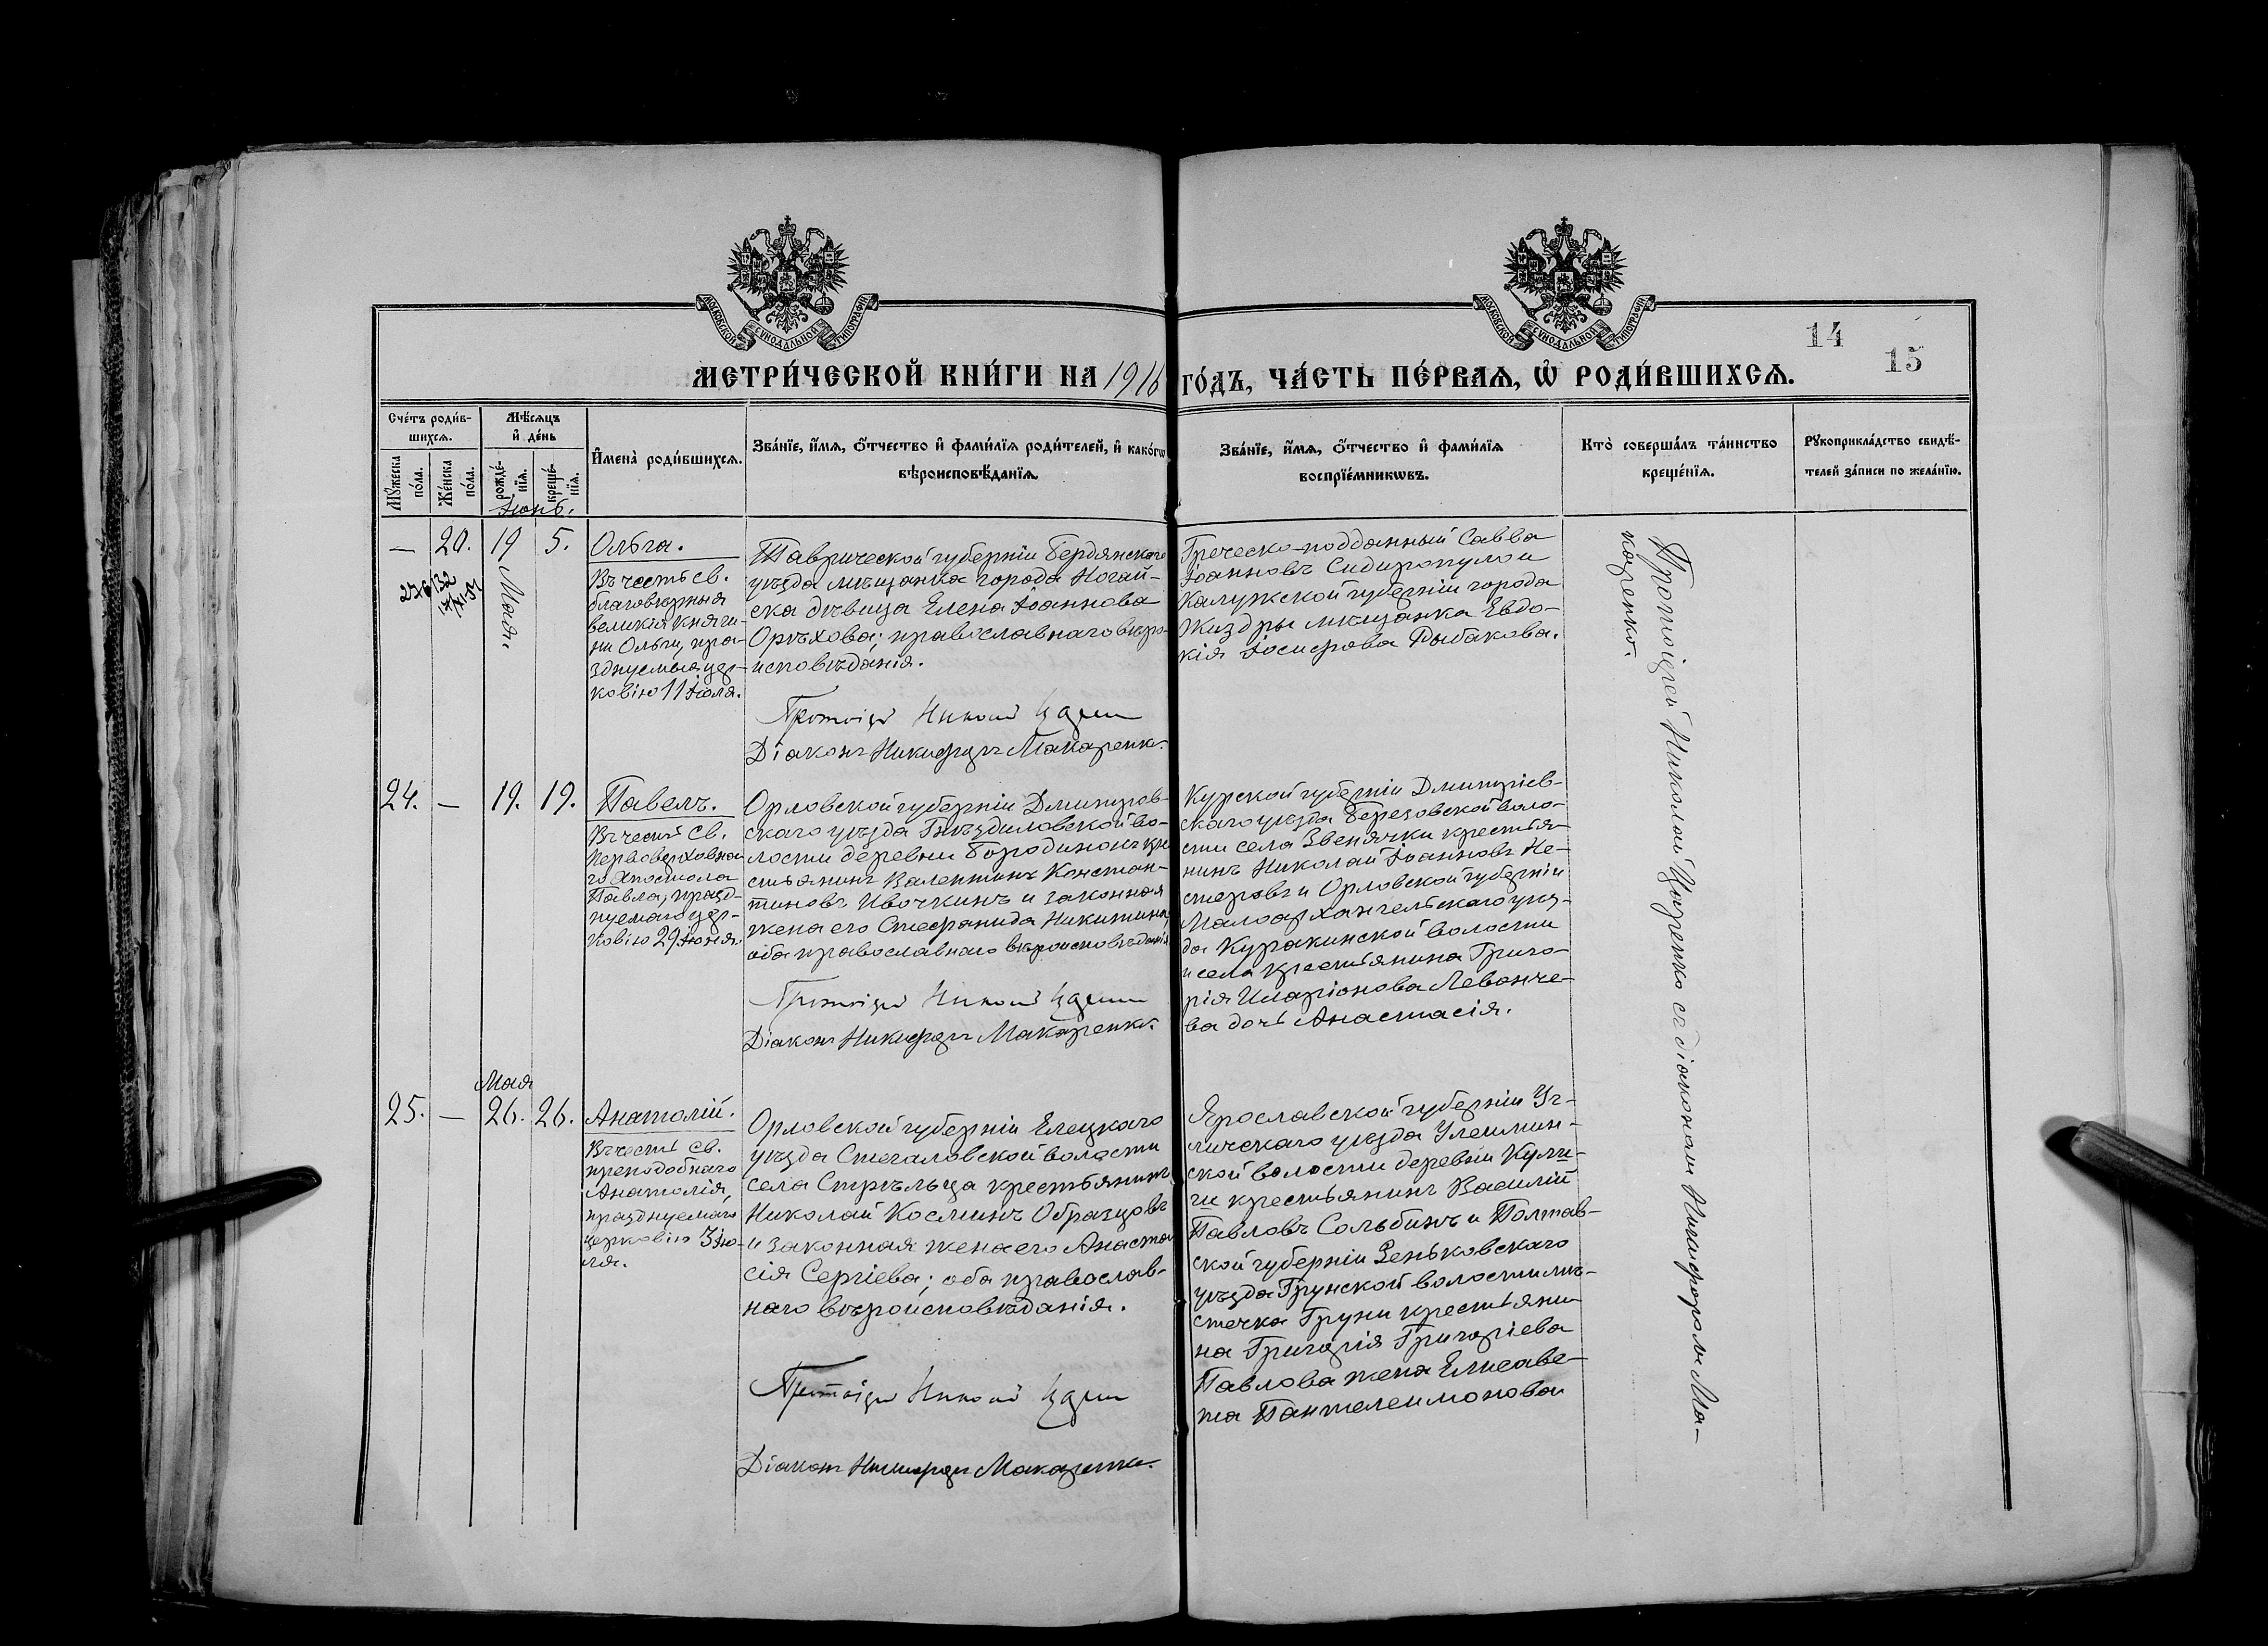 МОСКОВСКОЙ СУНОДАЛЬНОЙ ТИПОГРАФІИ
МОСКОВСКОЙ СУНОДАЛЬНОЙ ТИПОГРАФІИ
14
15
МЕТРИ́ЧЕСКОЙ КНИ́ГИ НА 1916 ГО́ДЪ, ЧА́СТЬ ПЕ́РВАЯ, Ѡ РОДИ́ВШИХСЯ.
Сче́тъ роди́в-
шихся.
Мѣ́сяцъ
и де́нь
Мꙋ́жеска
по́ла.
Же́нска
по́ла.
рожде́-
нїя.
креще́-
нїя.
И҆мена̀ роди́вшихся.
Зва́нїе, и҆́мя, ѻ҆́тчество и҆ фами́лїя роди́телей, и҆ како́гѡ
вѣроисповѣ́данїя.
Зва́нїе, и҆́мя, ѻ҆́тчество и҆ фами́лїя
воспрїе́мникѡвъ.
Кто̀ соверша́лъ та́инство
креще́нїя.
Рꙋкоприкла́дство свидѣ́-
телей за́писи по жела́нїю.
Іюнь.
— 20. 19 5. Ольга.
Мая.
Въ честь св.
благовѣрныя
великія княги-
ни Ольги, пра-
зднуемыя цер-
ковію 11 Іюля.
Таврической губерніи Бердянскаго
уѣзда мѣщанка города Ногай-
ска дѣвица Елена Іоаннова
Орѣхова; православнаго вѣро-
исповѣданія.
Протоіер Никол
Діаконъ Никифоръ Макаренко.
Греческо-подданный Савва
Іоанновъ Сидиропуло и
Калужской губерніи города
Жиздры мѣщанка Евдо-
кія Іосифова Рыбакова.
Протоіерей Николай Цюренко съ діакономъ Никифоромъ Ма-
каренко.
24. — 19. 19. Павелъ.
Въ честь св.
Первоверховна-
го Апостола
Павла, празд-
нуемаго цер-
ковію 29 Іюня.
Орловской губерніи Дмитров-
скаго уѣзда Гнѣздиловской во-
лости деревни Бородинокъ кре
стьянинъ Валентинъ Констан-
тиновъ Ивочкинъ и законная
жена его Стефанида Никитина
оба православнаго вѣроисповѣданія
Протоіер Никол
Діаконъ Никифоръ Макаренко.
Курской губерніи Дмитріев-
скаго уѣзда Березовской воло-
сти села Звенячки крестья-
нинъ Николай Іоанновъ Не-
стеровъ и Орловской губерніи
Малоархангельскаго уѣз-
да Куракинской волости
и села крестьянина Григо-
рія Иларіонова Левонче-
ва дочь Анастасія.
Мая
25. — 26. 26. Анатолій.
Въ честь св.
преподобнаго
Анатолія,
празднуемаго
церковію 3 Ію-
ля.
Орловской губерніи Елецкаго
уѣзда Стегаловской волости
села Стрѣльца крестьянинъ
Николай Косминъ Образцовъ
и законная жена его Анаста
сія Сергіева; оба православ-
наго вѣроисповѣданія.
Протоіер Никол
Діаконъ Никифоръ Макаренко.
Ярославской губерніи Уг-
личскаго уѣзда Улеймин-
ской волости деревни Кули-
ги крестьянинъ Василій
Павловъ Сольбинъ и Полтав-
ской губерніи Зеньковскаго
уѣзда Грунской волости мѣ-
стечка Груни крестьяни-
на Григорія Григоріева
Павлова жена Елисаве-
та Пантелеимонова